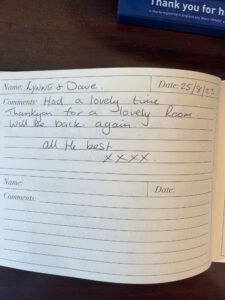 Thank you for h
Name: Lynne & Dave. Date: 25/8/23
Comments: Had a lovely time
Thankyou for a lovely Room
Will be back again
all the best
xxxx.
Name: Date:
Comments: